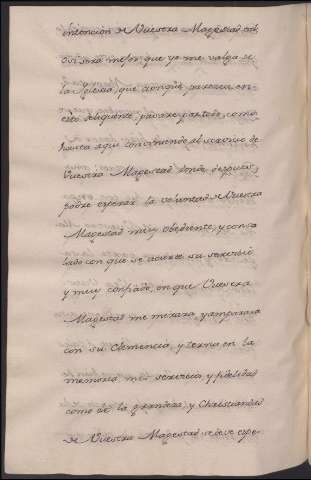 intencion de Vuestra Magestad
sera mejor que yo me valga de
la Iglesia, que aunque parezca en
esto delinquente, passare por todo, como
hasta aqui conviniendo al servicio de
Vuestra Magestad donde despues
podre esperar la voluntad de Vuestra
Magestad muy obediente, y consolado
con que se acierte su servicio
y muy confiado, en que Vuestra
Magestad me mirara, y amparara
con su Clemencia, y terna en la
memoria mis servicios, y fidelidad
como de la grandeza, y Christiandad
de Vuestra Magestad se deve espe-